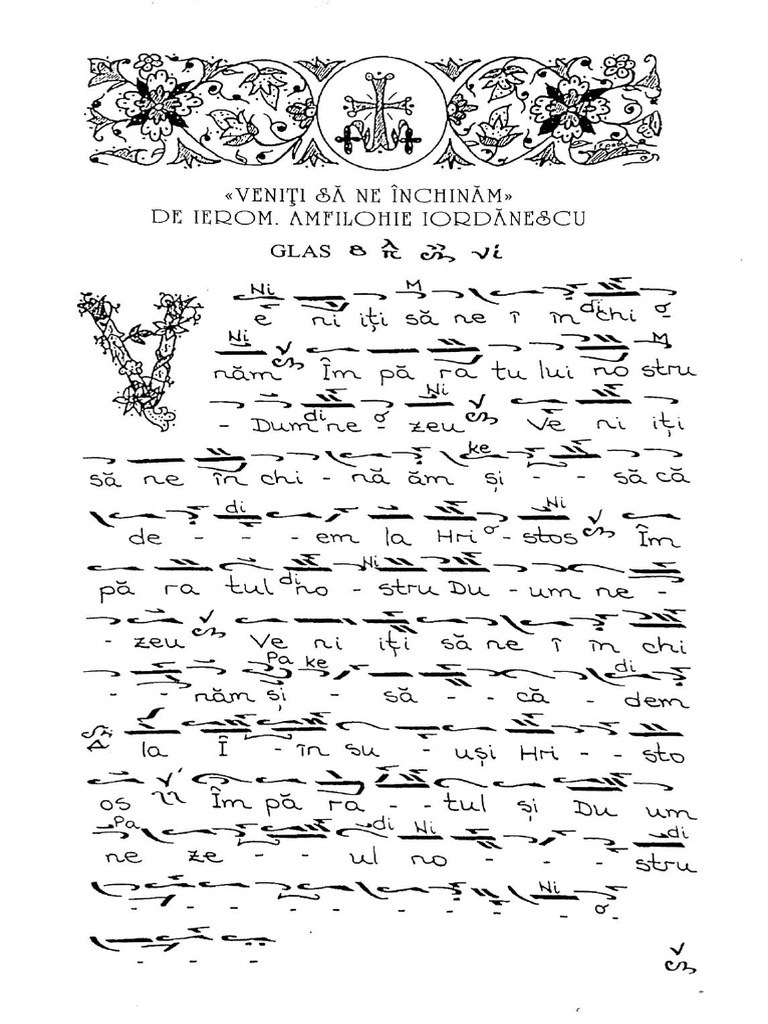 «VENIŢI SĂ NE ÎNCHINĂM»
DE IEROM. AMFILOHIE IORDĂNESCU
GLAS 8 λπ Ni
Ni M
V e ni iţi să ne î în di chi
Ni M
năm Îm pă ra tu lui no stru
Ni
- Dum di ne - zeu Ve ni iţi
ke
să ne în chi - nă ăm şi - - să că
di Ni
de - - - em la Hri - stos Îm
Ni
pă ra tul di no - stru Du - um ne -
- zeu Ve ni iţi să ne î în chi
Pa ke di
- - năm şi - să - - că - dem
la Î - în su - uşi Hri - - sto
os Îm pă ra - - tul şi Du um
Pa di Ni di
ne ze - - - ul no - - - stru
Ni
- - - - - - - - - - -
- - -